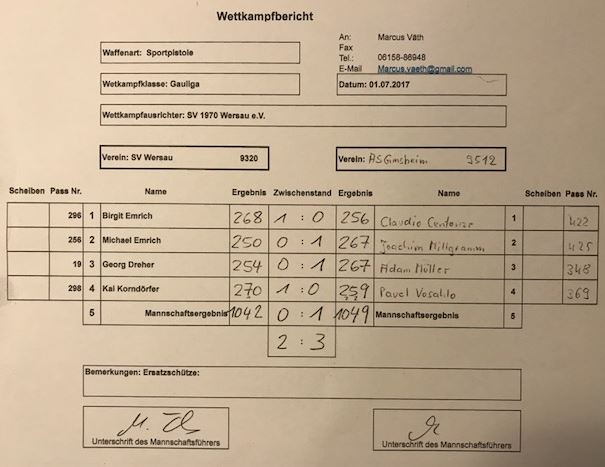 Wettkampfbericht
An: Marcus Väth
Fax
Waffenart: Sportpistole
Tel.: 06158-86948
E-Mail Marcus.vaeth@gmail.com
Wetkampfklasse: Gauliga
Datum: 01.07.2017
Wettkampfausrichter: SV 1970 Wersau e.V.
Verein: SV Wersau 9320 Verein: ASGinsheim 9512
Scheiben Pass Nr. Name Ergebnis Zwischenstand Ergebnis Name Scheiben Pass Nr.
296 1 Birgit Emrich 268 1 : 0 256 Claudio 1 422
256 2 Michael Emrich 250 0 : 1 267 Joachim Millgramm 2 425
19 3 Georg Dreher 254 0 : 1 267 Adam Müller 3 348
298 4 Kai Korndörfer 270 1 : 0 259 Pavel 4 369
5 Mannschaftsergebnis 1042 0 : 1 1049 Mannschaftsergebnis 5
2 : 3
Bemerkungen: Ersatzschütze:
Unterschrift des Mannschaftsführers Unterschrift des Mannschaftsführers